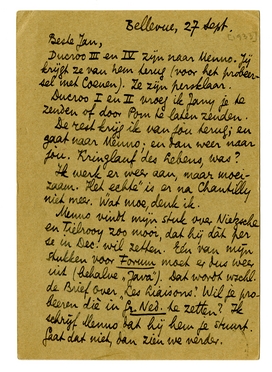 Bellevue, 27 Sept.
[1933]
Beste Jan,
Ducroo III en IV zijn naar Menno. Jij
krijgt ze van hem terug (voor het probeer-
sel met Coenen). Ze zijn persklaar.
Ducroo I en II vroeg ik Jany je te
zenden of door Pom te laten zenden.
De rest krijg ik van jou terug; en
gaat naar Menno; en dan weer naar
jou. Kringlauf des Lebens, was?
Ik werk er weer aan, maar moei-
zaam. Het echte is er na Chantilly
niet meer. Wat moe, denk ik.
Menno vindt mijn stuk over Nietzsche
en Tielrooy zoo mooi, dat hij dàt per
se in Dec. wil zetten. Eén van mijn
stukken voor Forum moet er dus weer
uit (behalve "Java"). Dat wordt wschl.
de Brief over "Les Liaisons". Wil je pro-
beeren die in Gr. Ned. te zetten? Ik
schrijf Menno dat hij hem je stuurt.
Gaat dat niet, dan zien we verder.